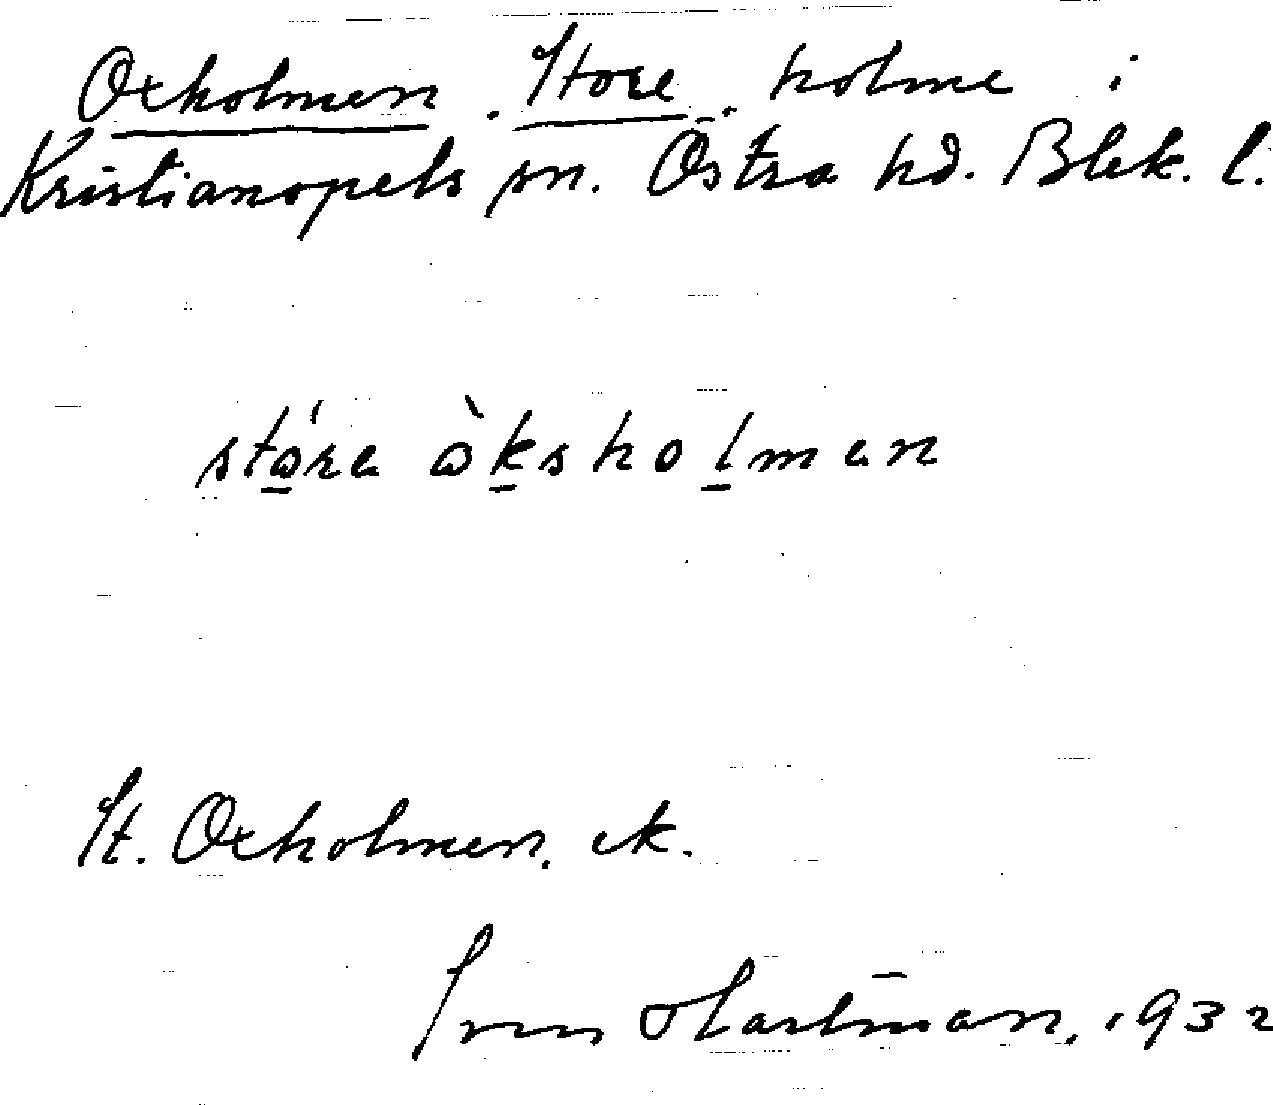 Oxholmen, Store, holme i
Kristianopels sn. Östra hd. Blek. l.
stóra òksholman
St. Oxholmen. ek.
Sven Hartman. 1932